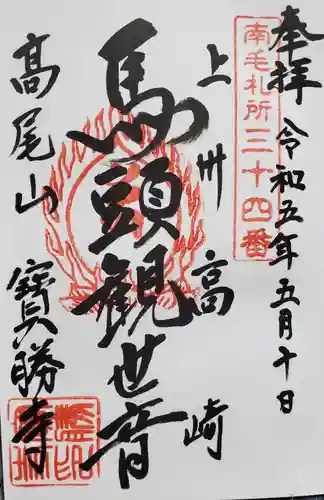 奉拝
令和五年五月十日
南毛札所三十四番
上州高崎
馬頭観世音
髙尾山
寳勝寺